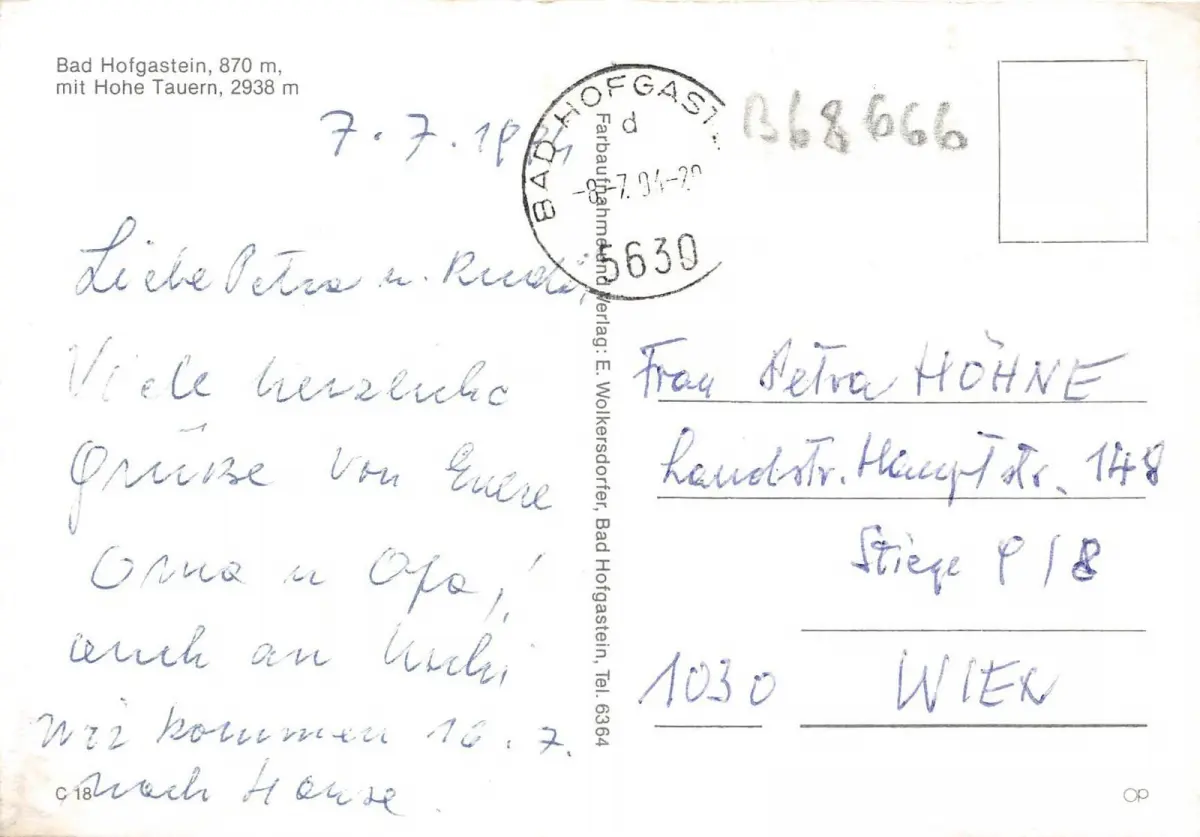 Bad Hofgastein, 870 m,
mit Hohe Tauern, 2938 m
7.7.19
BAD HOFGAST
d
-8.-7.
5630
B68666
Liebe Petra u. Rudi,
Viele herzliche
Grüße von Euere
Oma u Opa,!
auch an Uschi
wir kommen 16.7.
nach Hause.
C 18
Farbaufnahme und Verlag: E. Wolkersdorfer, Bad Hofgastein, Tel. 6364
Frau Petra HÖHNE
Landstr. Hauptstr. 148
Stiege 9/8
1030 WIEN
OP